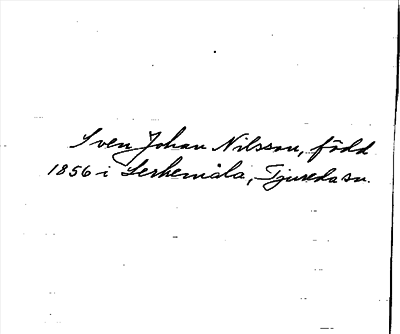 Sven Johan Nilsson, född
1856 i Lerkemåla, Tjureda sn.